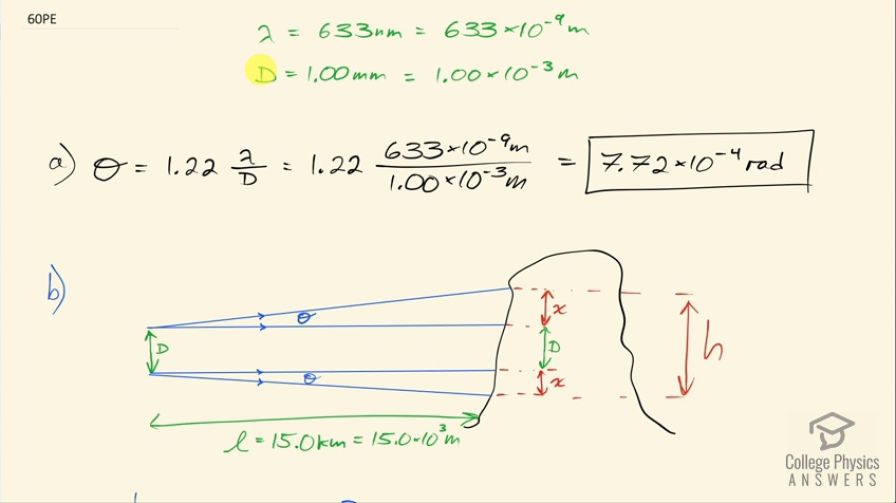 60PE
λ = 633nm = 633×10⁻⁹m
D = 1.00mm = 1.00×10⁻³m
a) θ = 1.22 λ/D = 1.22 633×10⁻⁹m/1.00×10⁻³m = 7.72×10⁻⁴ rad
b)
θ
x
D
D
h
θ
x
l = 15.0km = 15.0·10³m
College Physics
ANSWERS